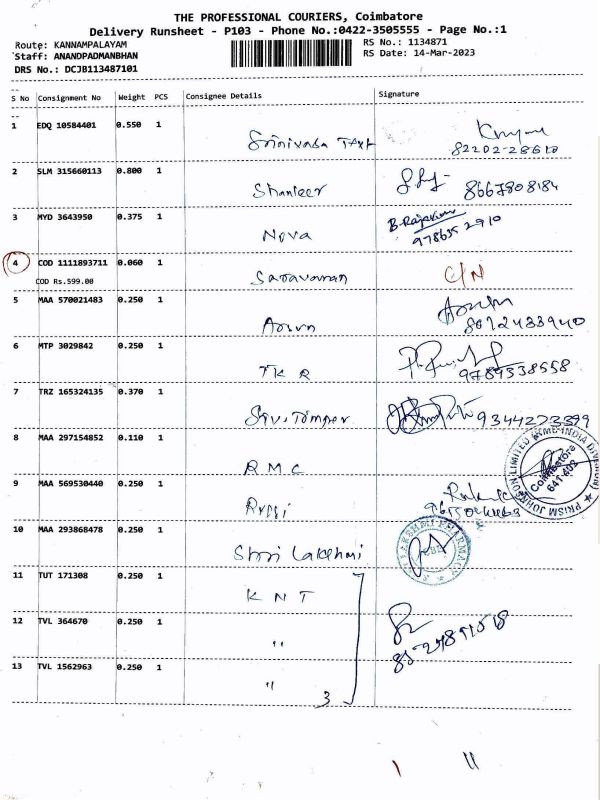 THE PROFESSIONAL COURIERS, Coimbatore
Delivery Runsheet - P103 - Phone No.:0422-3505555 - Page No.:1
Route: KANNAMPALAYAM
RS No.: 1134871
Staff: ANANDPADMANBHAN
RS Date: 14-Mar-2023
DRS No.: DCJB113487101
S No Consignment No Weight PCS Consignee Details Signature
1 EDQ 10584401 0.550 1 Srinivasa Text
82202-28610
2 SLM 315660113 0.800 1 Shanleer 8667808184
3 MYD 3643950 0.375 1 Nova
4 COD 1111893711 0.060 1 Saravanan C/N
COD Rs.599.00
5 MAA 570021483 0.250 1 Arun
8072433940
6 MTP 3029842 0.250 1 TKR
9789338558
7 TRZ 165324135 0.370 1 9344273399
8 MAA 297154852 0.110 1 RMC
PRISM JOHNSON LIMITED (RMC-INDIA DIVISION)
Coimbatore
641 403
9 MAA 569530440 0.250 1
10 MAA 293868478 0.250 1 Shri Lakshmi
LAKSHMI PHARMACY
11 TUT 171308 0.250 1 KNT
12 TVL 364670 0.250 1 "
13 TVL 1562963 0.250 1 "
3